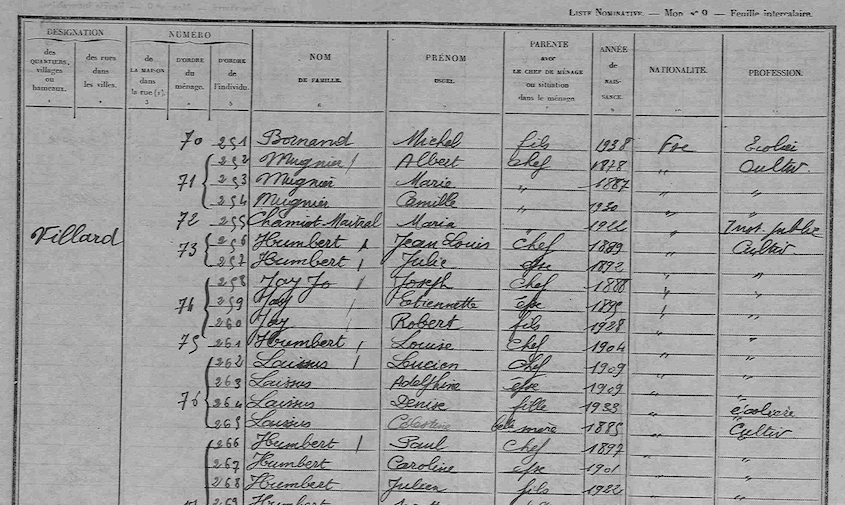 LISTE NOMINATIVE. — Mod. n° 9 — Feuille intercalaire.
DÉSIGNATION NUMÉRO NOM DE FAMILLE. PRÉNOM USUEL. PARENTÉ avec LE CHEF DE MÉNAGE ou situation dans le ménage ANNÉE DE NAISSANCE. NATIONALITÉ. PROFESSION.
des QUARTIERS, villages ou hameaux. des rues dans les villes. de LA MAISON dans la rue (1). D'ORDRE du ménage. D'ORDRE de l'individu.
70 251 Bornand Michel fils 1938 Fse Ecolier
252 Mugnier Albert Chef 1878 " Cultiv.
71 253 Mugnier Marie " 1887 " "
254 Mugnier Camille " 1930 " "
72 255 Chamiot-Maitral Maria 1922 " Inst. public
Villard
73 256 Humbert Jean Louis Chef 1889 " Cultiv
257 Humbert Julie epse 1892 " "
258 Jay Jo Joseph Chef 1888 " "
74 259 Jay Etiennette Epse 1895 " "
260 Jay Robert fils 1928 " "
75 261 Humbert Louise Chef 1904 " "
262 Laissus Lucien Chef 1909 " "
263 Laissus Adelphine epse 1909 " "
76 264 Laissus Denise fille 1933 " écolière
265 Laissus Célestine belle mère 1885 " Cultiv
266 Humbert Paul Chef 1897 " "
267 Humbert Caroline epse 1901 " "
268 Humbert Julien fils 1922 " "
269 Humbert